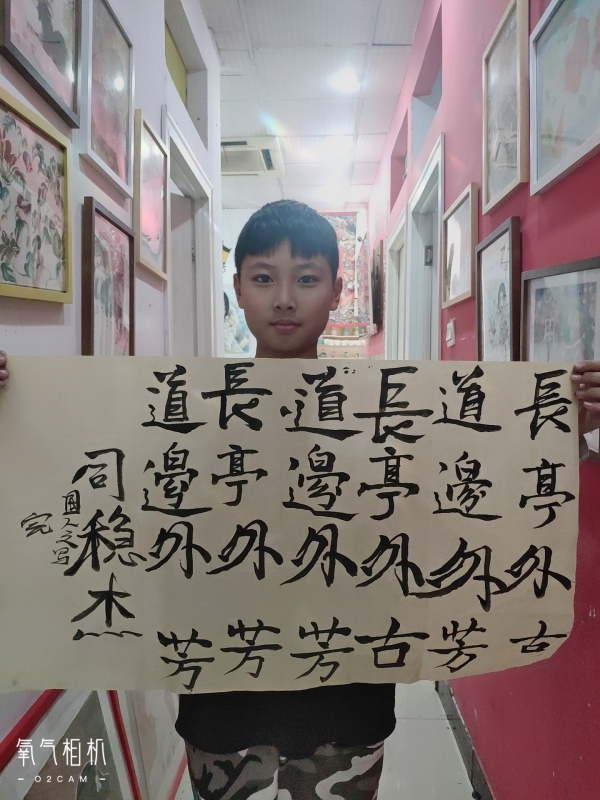 長亭外古
道邊外芳
長亭外古
道邊外芳
長亭外芳
道邊外芳
同稳杰
完
氧气相机
– O2CAM –